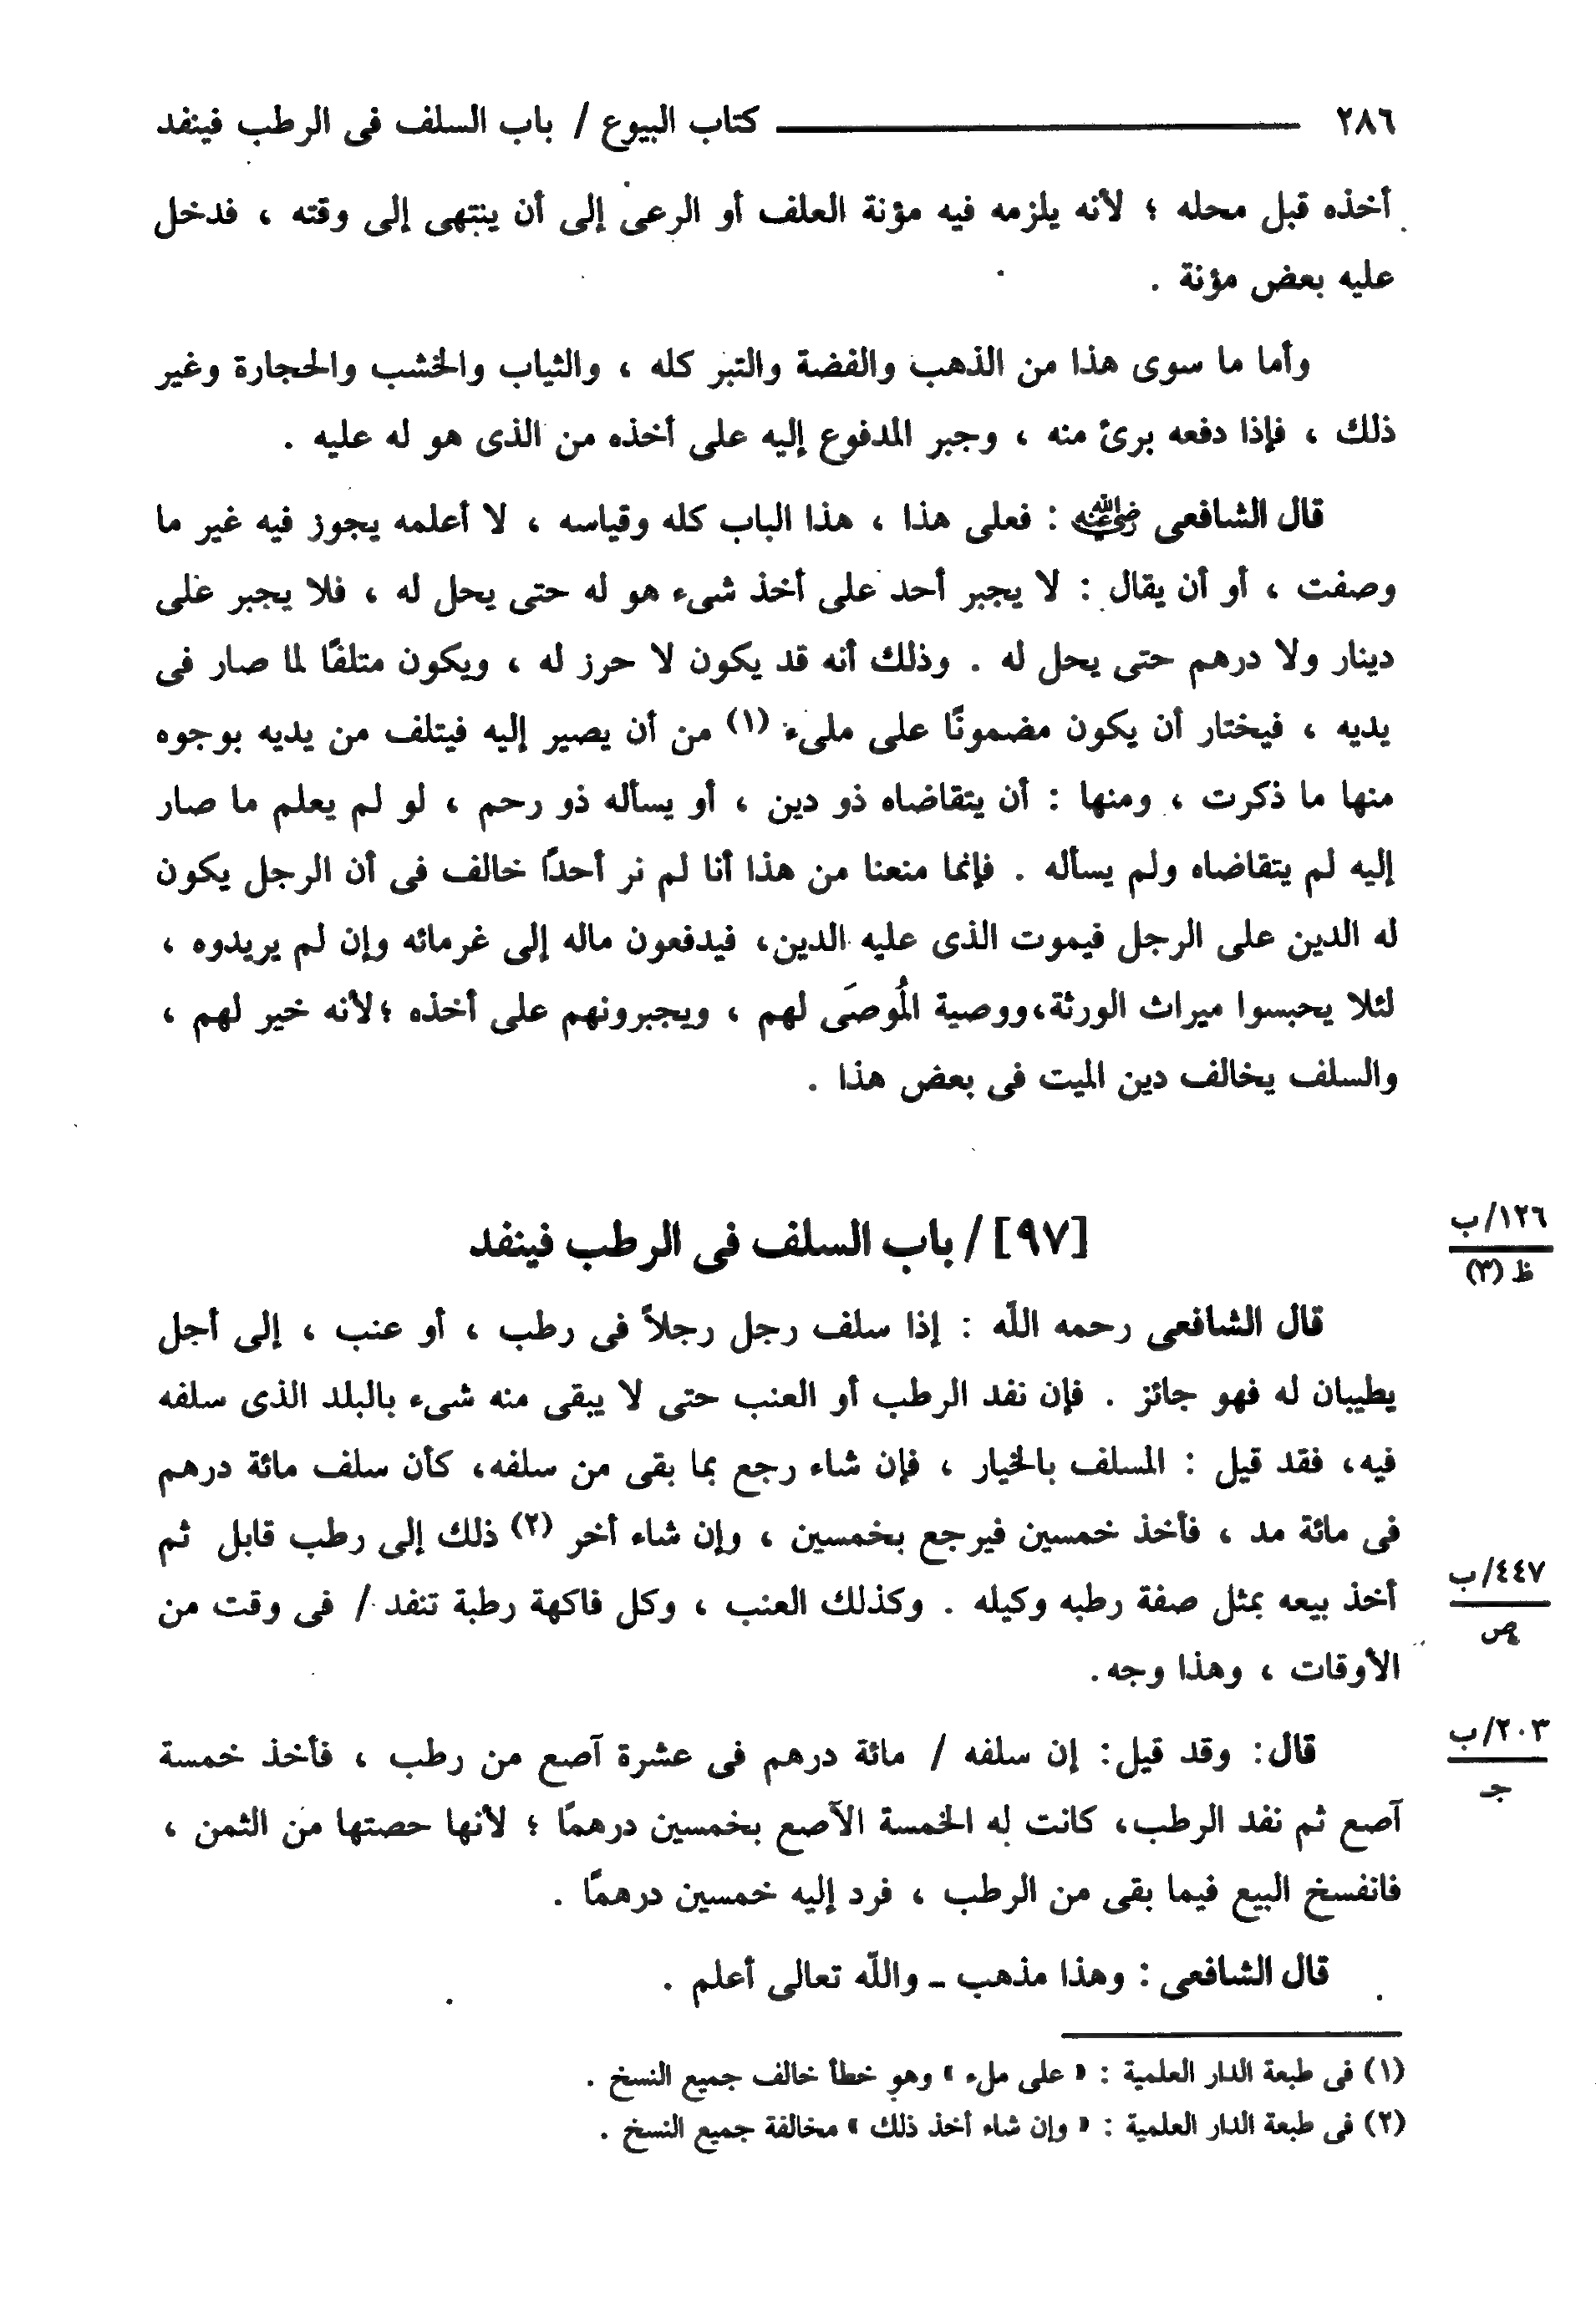 ٢٨٦ كتاب البيوع / باب السلف فى الرطب فينفد
أخذه قبل محله ؛ لأنه يلزمه فيه مؤنة العلف أو الرعى إلى أن ينتهى إلى وقته ، فدخل
عليه بعض مؤنة .
وأما ما سوى هذا من الذهب والفضة والتبر كله ، والثياب والخشب والحجارة وغير
ذلك ، فإذا دفعه برئ منه ، وجبر المدفوع إليه على أخذه من الذى هو له عليه .
قال الشافعى رضي الله عنه : فعلى هذا ، هذا الباب كله وقياسه ، لا أعلمه يجوز فيه غير ما
وصفت ، أو أن يقال : لا يجبر أحد على أخذ شىء هو له حتى يحل له ، فلا يجبر على
دينار ولا درهم حتى يحل له . وذلك أنه قد يكون لا حرز له ، ويكون متلفًا لما صار فى
يديه ، فيختار أن يكون مضمونًا على ملىء (١) من أن يصير إليه فيتلف من يديه بوجوه
منها ما ذكرت ، ومنها : أن يتقاضاه ذو دين ، أو يسأله ذو رحم ، لو لم يعلم ما صار
إليه لم يتقاضاه ولم يسأله . فإنما منعنا من هذا أنا لم نر أحدًا خالف فى أن الرجل يكون
له الدين على الرجل فيموت الذى عليه الدين، فيدفعون ماله إلى غرمائه وإن لم يريدوه ،
لئلا يحبسوا ميراث الورثة،ووصية المُوصَى لهم ، ويجبرونهم على أخذه ؛لأنه خير لهم ،
والسلف يخالف دين الميت فى بعض هذا .
١٢٦/ب
ظ (٣)
[٩٧] / باب السلف فى الرطب فينفد
قال الشافعى رحمه اللّه : إذا سلف رجل رجلاً فى رطب ، أو عنب ، إلى أجل
يطيبان له فهو جائز . فإن نفد الرطب أو العنب حتى لا يبقى منه شىء بالبلد الذى سلفه
فيه، فقد قيل : المسلف بالخيار ، فإن شاء رجع بما بقى من سلفه، كأن سلف مائة درهم
فى مائة مد ، فأخذ خمسين فيرجع بخمسين ، وإن شاء أخر (٢) ذلك إلى رطب قابل ثم
٤٤٧/ب
ص
أخذ بيعه بمثل صفة رطبه وكيله . وكذلك العنب ، وكل فاكهة رطبة تنفد / فى وقت من
الأوقات ، وهذا وجه.
٢٠٣/ب
جـ
قال: وقد قيل: إن سلفه / مائة درهم فى عشرة آصع من رطب ، فأخذ خمسة
آصع ثم نفد الرطب، كانت له الخمسة الآصع بخمسين درهمًا ؛ لأنها حصتها من الثمن ،
فانفسخ البيع فيما بقى من الرطب ، فرد إليه خمسين درهمًا .
قال الشافعى : وهذا مذهب ـ واللّه تعالى أعلم .
(١) فى طبعة الدار العلمية : « على ملء » وهو خطأ خالف جميع النسخ .
(٢) فى طبعة الدار العلمية : « وإن شاء أخذ ذلك » مخالفة جميع النسخ .